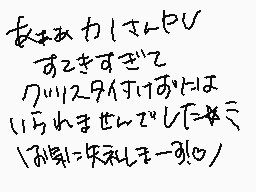 あああカーさんPV
すてきすぎて
クリスタ付けずには
いられませんでした☆ミ
\お気に失礼しまーす!♡/